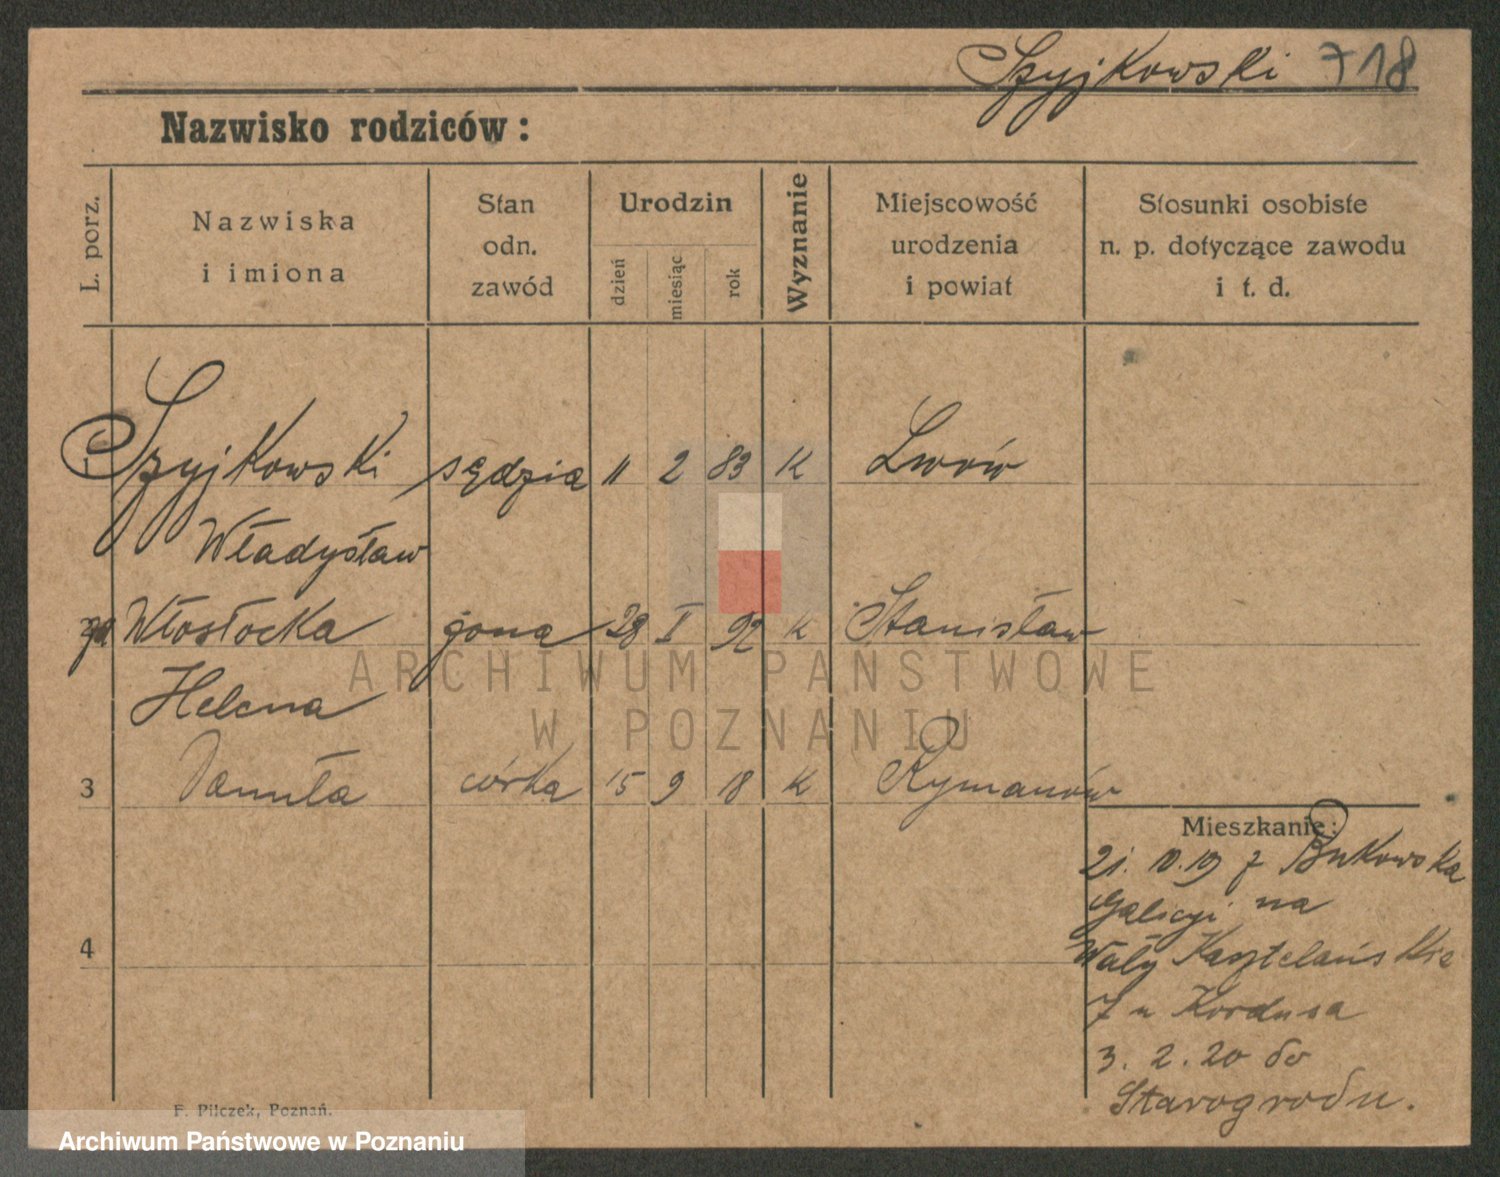 Szyjkowski 718
Nazwisko rodziców:
L. porz.
Nazwiska
i imiona
Stan
odn.
zawód
Urodzin
dzień
miesiąc
rok
Wyznanie
Miejscowość
urodzenia
i powiat
Stosunki osobiste
n. p. dotyczące zawodu
i t. d.
1 Szyjkowski sędzia 11 2 83 K Lwów
Władysław
Włosłocka żona 28 I 92 K Stanisław
Helena
3 Danuta córka 15 9 18 K Rymanów
Mieszkanie:
21. 10. 19 z Bukowska
Galicyi na
Wały Kasztelańskie
7 u Kordusa
3. 2. 20 do
Starogrodu.
4
F. Pilczek, Poznań.
ARCHIWUM PAŃSTWOWE
W POZNANIU
Archiwum Państwowe w Poznaniu